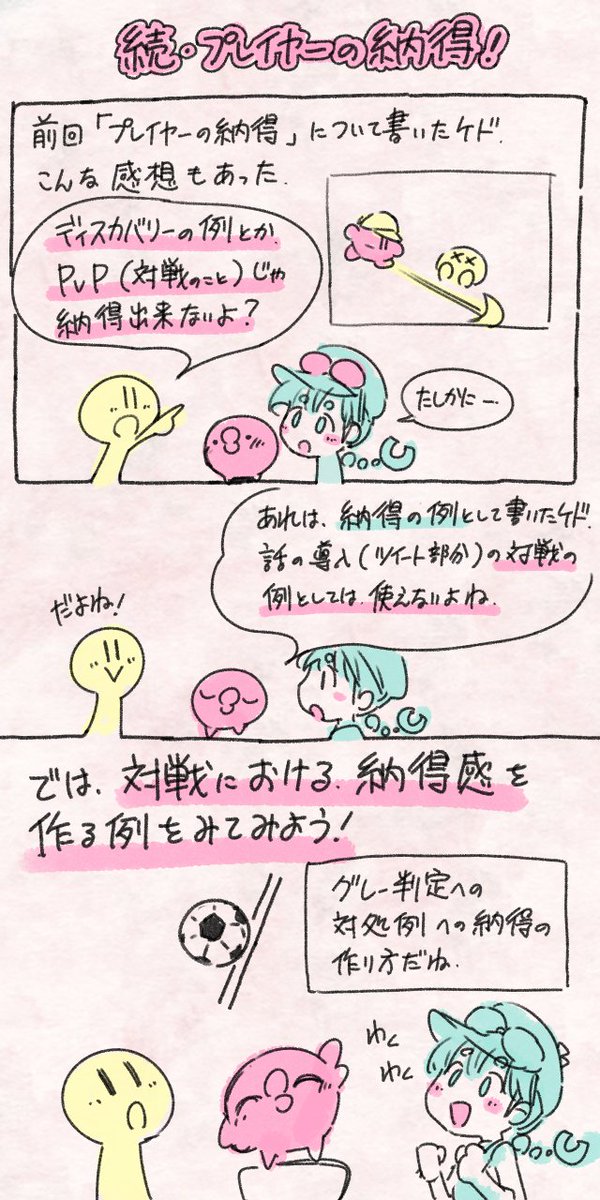 続・プレイヤーの納得!
前回「プレイヤーの納得」について書いたケド.
こんな感想もあった.
ディスカバリーの例とか.
PvP(対戦のこと)じゃ
納得出来ないよ?
たしかにー.
あれは、納得の例として書いたケド.
話の導入(ツイート部分)の対戦の
例としては、使えないよね.
だよね!
では、対戦における、納得感を
作る例をみてみよう!
グレー判定への
対処例への納得の
作り方だね.
わく
わく